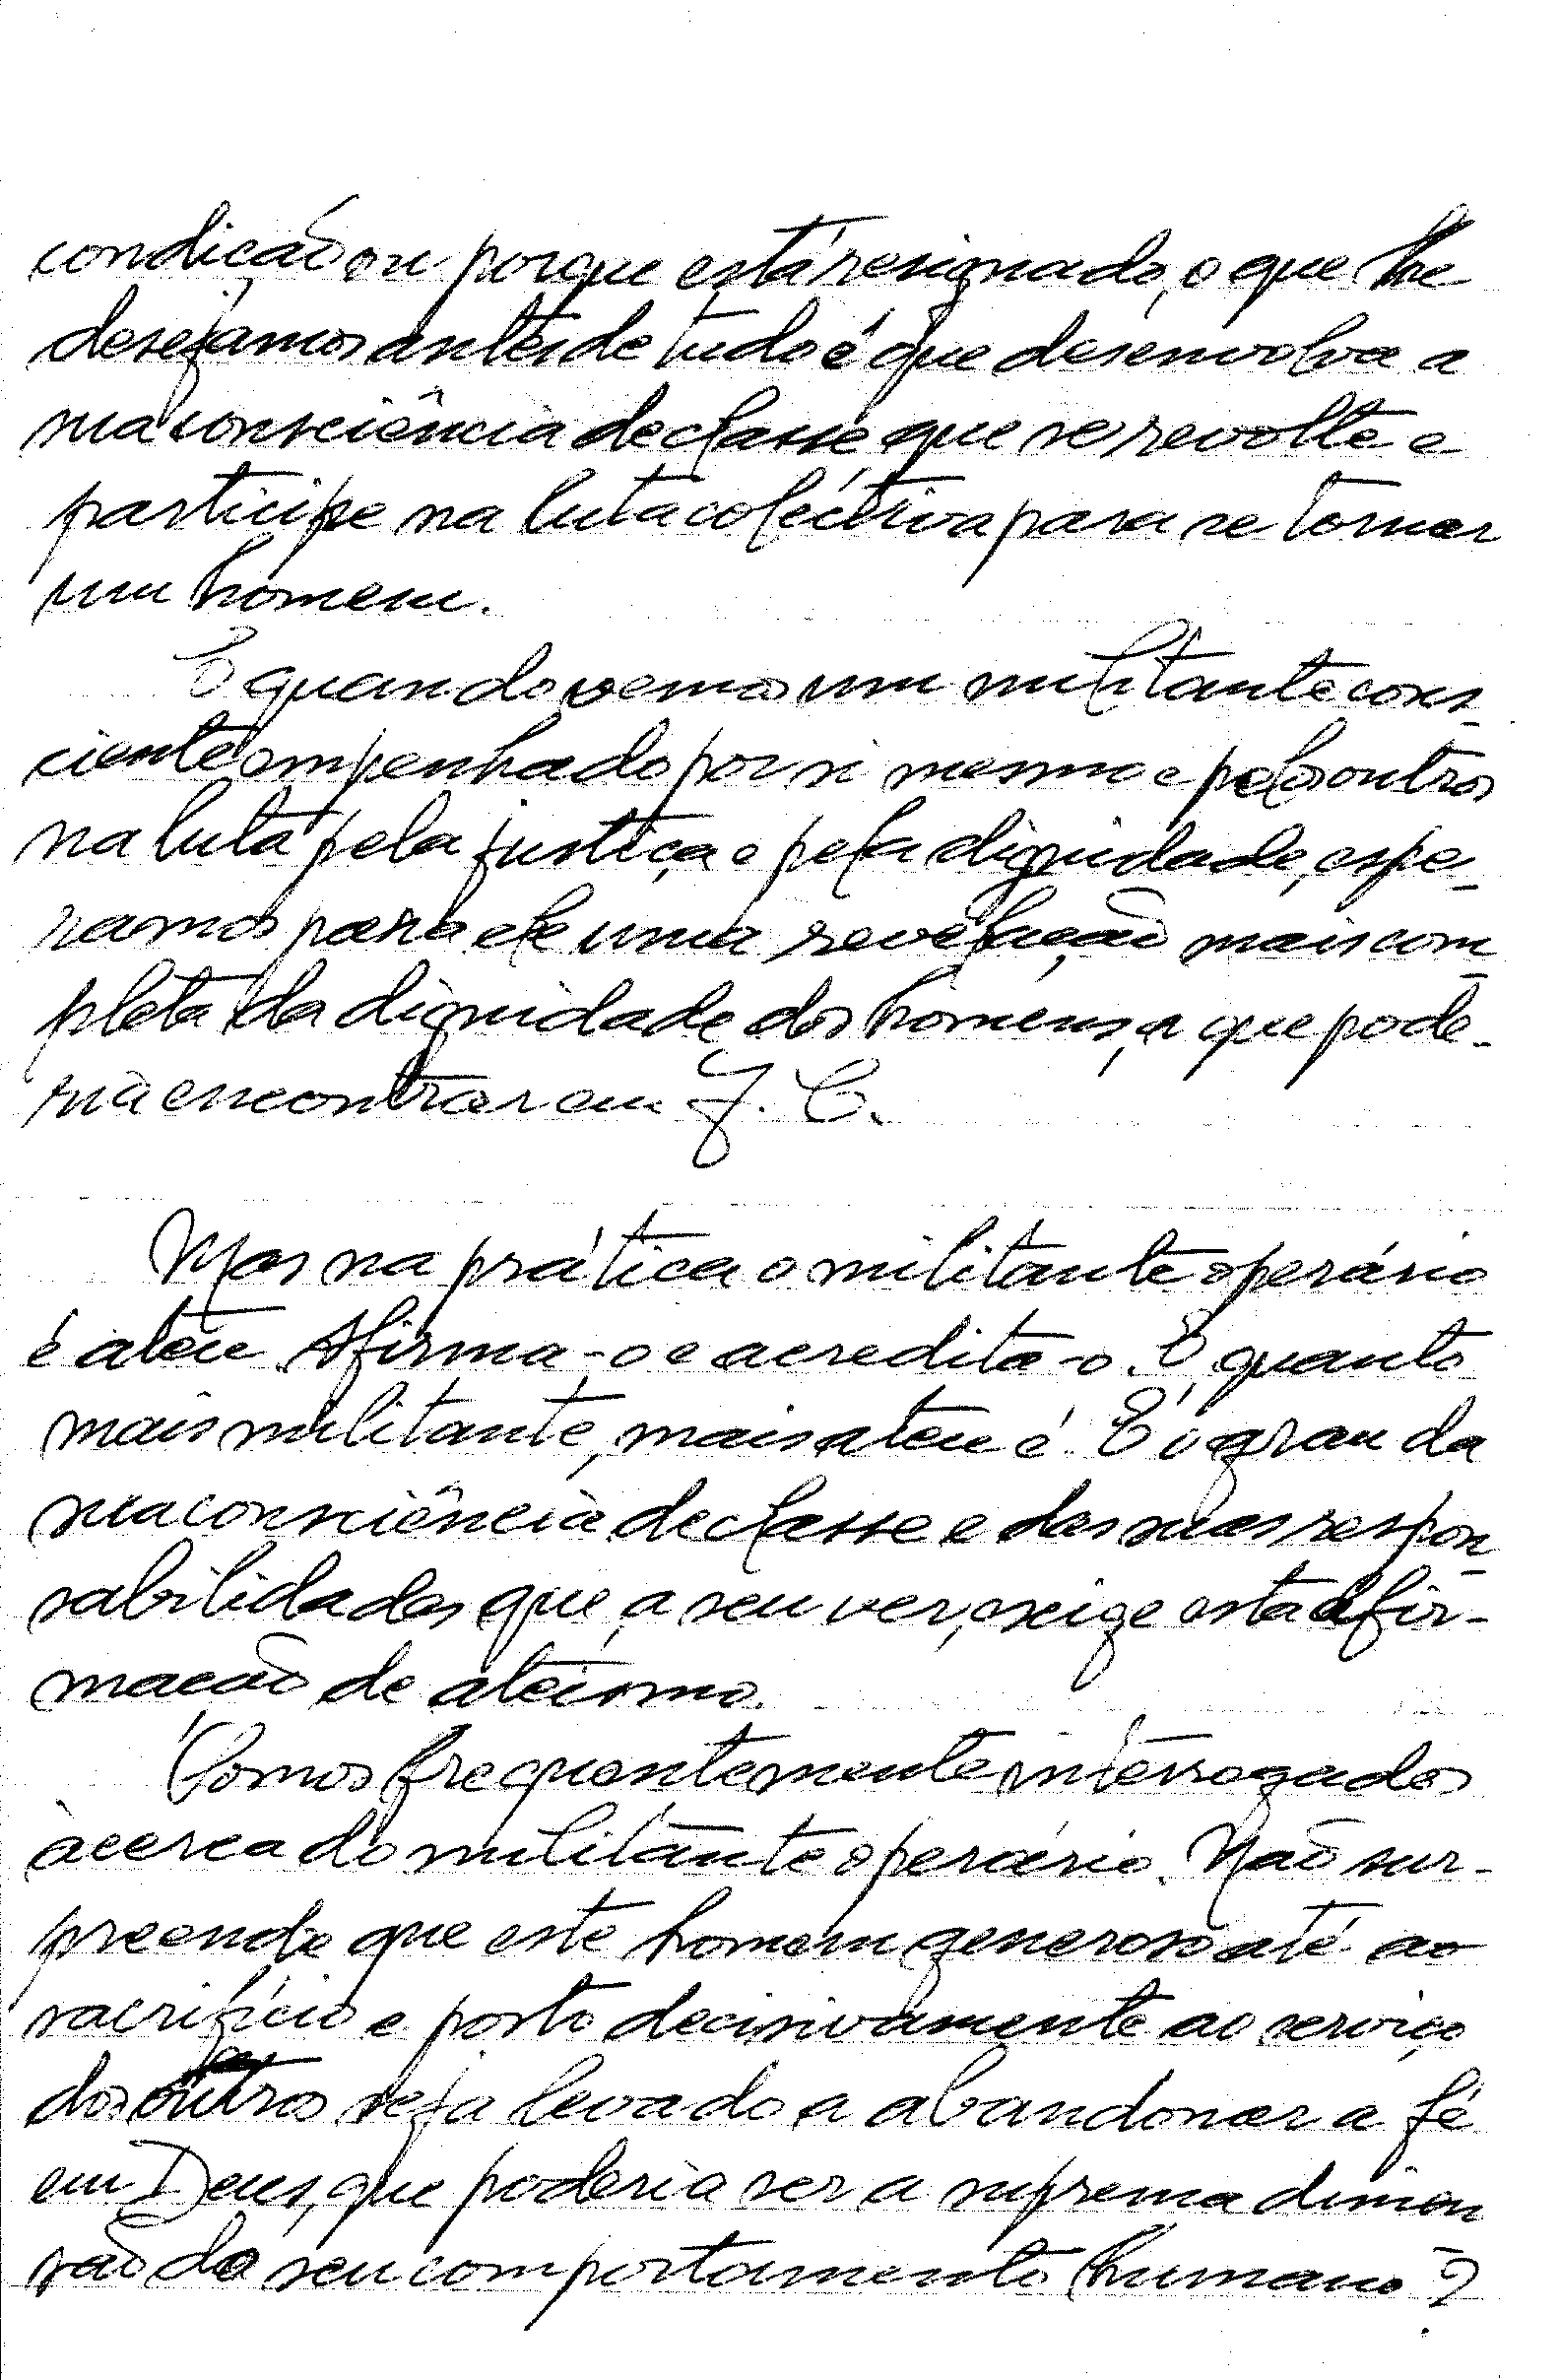 condição ou porque está resignado, o que lhe
desejamos antes de tudo é que desenvolva a
sua consciência de classe que se revolte e
participe na luta coléctiva para se tornar
um homem.
E quando vemos um militante cons-
ciente empenhado por si mesmo e pelos outros
na luta pela justiça e pela dignidade, espe-
ramos para ele uma revelação mais com-
pleta da dignidade dos homens, a que pode-
ria encontrar em J. C.
Mas na prática o militante operário
é ateu. Afirma-o e acredita-o. E, quanto
mais militante, mais ateu é. É o grau da
sua consciência de classe e das suas respon-
sabilidades que, a seu ver, exige esta afir-
mação de ateismo.
Somos frequentemente interrogados
àcerca do militante operário. Não sur-
preende que este homem generoso até ao
sacrifício e posto decisivamente ao serviço
dos outros seja levado a abandonar a fé
em Deus, que poderia ser a suprema dimen-
são do seu comportamento humano?